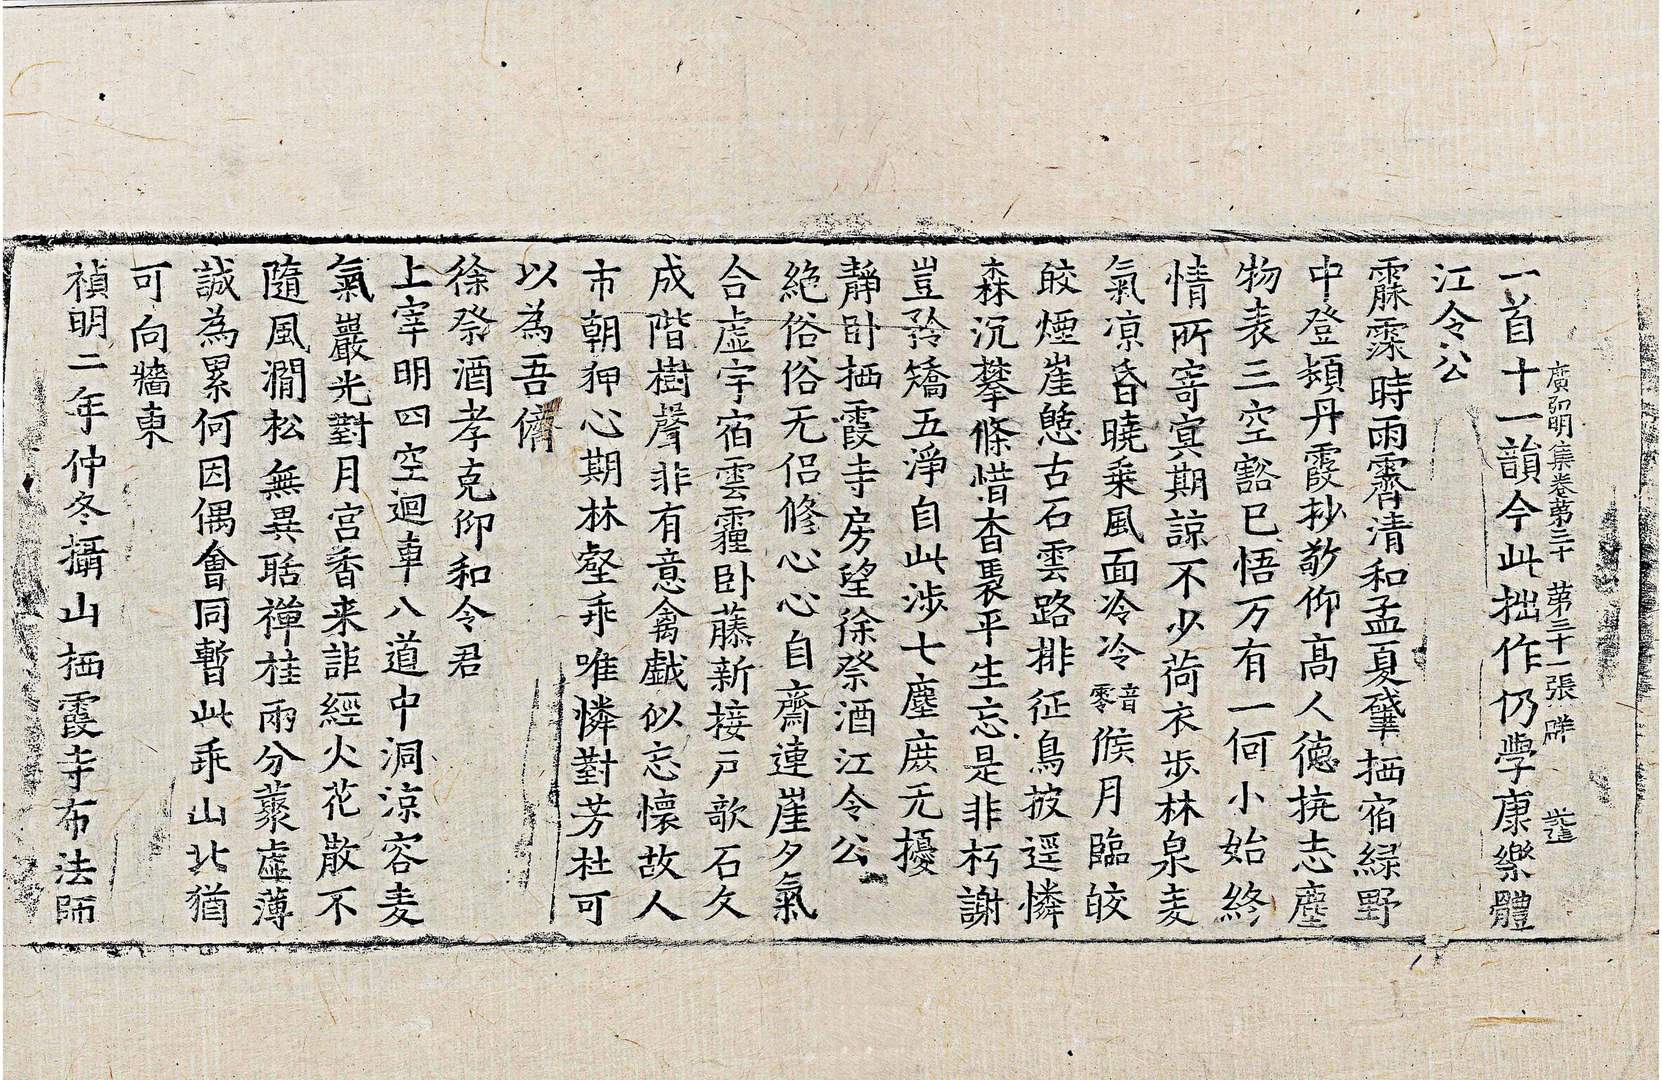 一首十一韻今此拙作仍學康樂體
廣弘明集卷第三十　第三十一張　群
江令公
霡霂時雨霽清和孟夏肇栖宿綠野
中登頫丹霞抄敬仰高人德抗志塵
物表三空豁已悟万有一何小始終
情所寄冥期諒不少荷衣步林泉麦
氣凉昏曉乗風面泠泠音零候月臨皎
皎煙崖憩古石雲路排征鳥披逕憐
森沉攀條惜杳褭平生忘是非朽謝
豈矜矯五淨自此涉七塵庶无擾
靜卧栖霞寺房望徐祭酒江令公
絶俗俗无侣修心心自齋連崖夕氣
合虚宇宿雲霾卧藤新接戸歌石久
成階樹聲非有意禽戯似忘懷故人
市朝狎心期林壑乖唯憐對芳杜可
以為吾儕
徐祭酒孝克仰和令君
上宰明四空迴車八道中洞涼容麦
氣巖光對月宮香来詎經火花散不
隨風澗松無異聒禪桂兩分藂虚薄
誠為累何因偶會同暫此乖山北猶
可向牆東
禎明二年仲冬攝山栖霞寺布法師